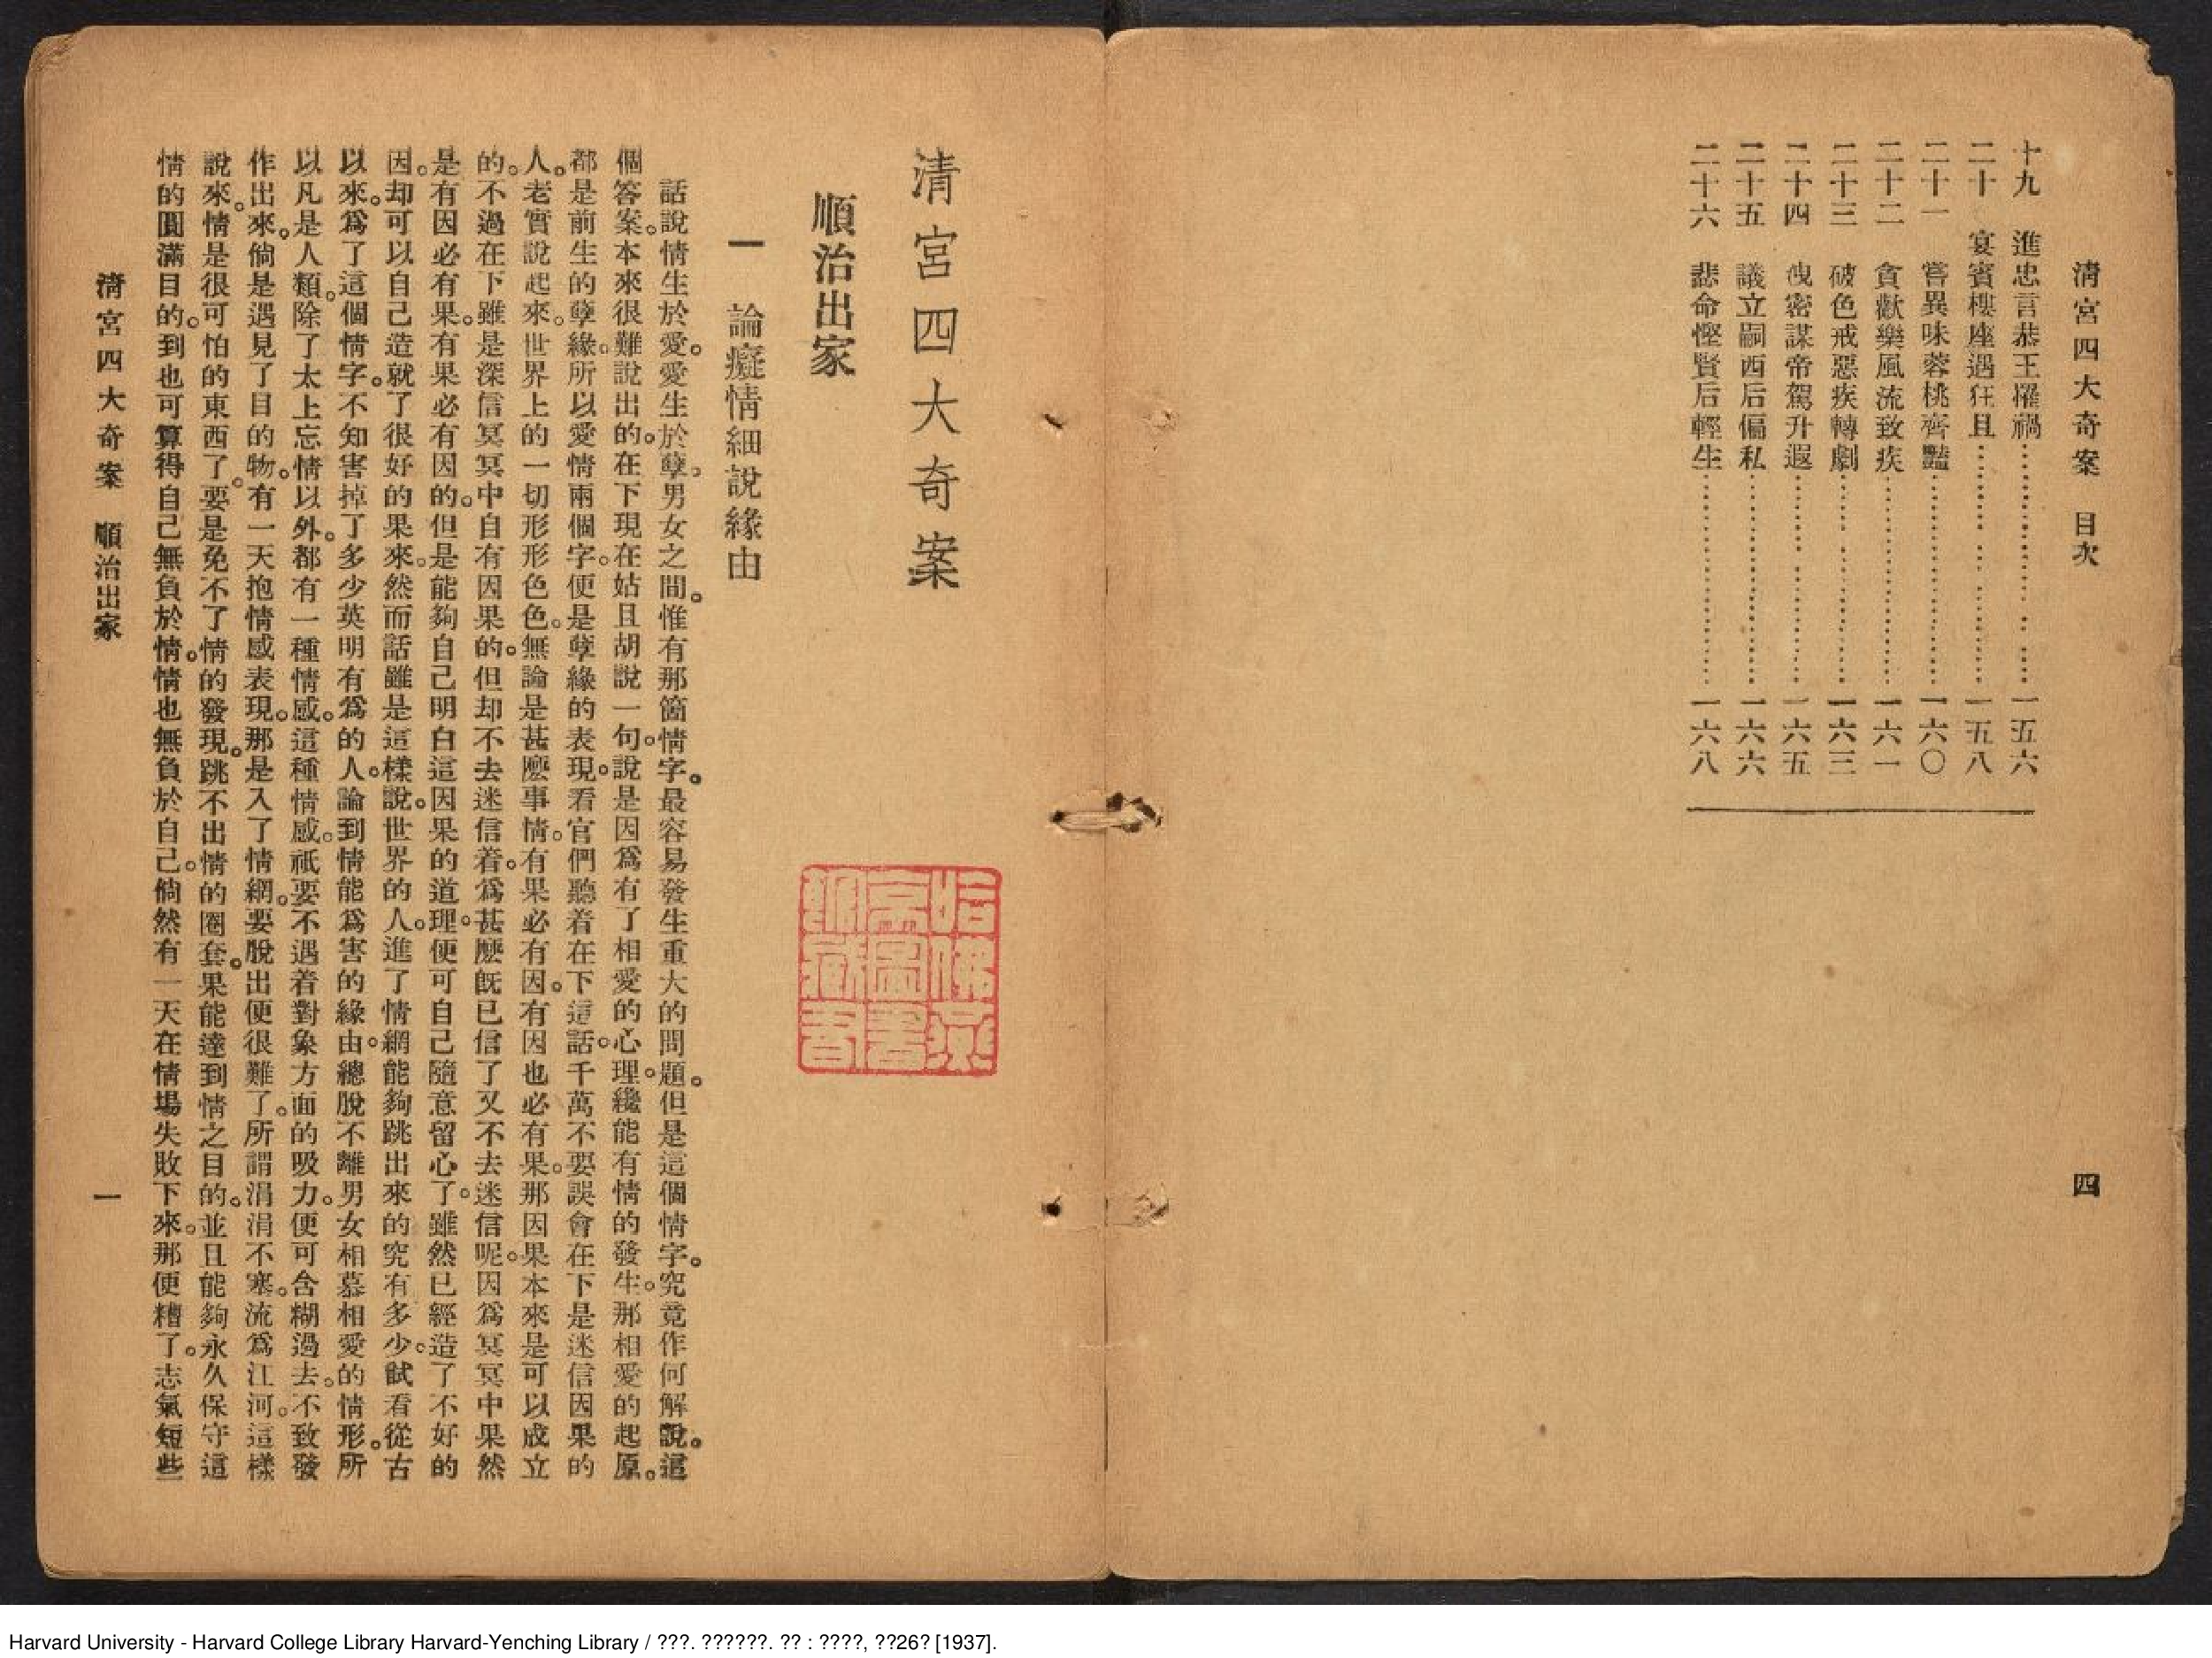 清宮四大奇案　目次
四
十九　進忠言恭王罹禍…………一五六
二十　宴賓樓座遇狂且…………一五八
二十一　嘗異味蓉桃濟豔…………一六〇
二十二　貪歡樂風流致疾…………一六一
二十三　破色戒惡疾轉劇…………一六三
二十四　洩密謀帝駕升遐…………一六五
二十五　議立嗣西后偏私…………一六六
二十六　悲命慳賢后輕生…………一六八
清宮四大奇案
順治出家
一　論癡情細說緣由
話說情生於愛。愛生於孽。男女之間。惟有那箇情字。最容易發生重大的問題。但是這個情字。究竟作何解說。這
個答案。本來很難說出的。在下現在姑且胡說一句。說是因爲有了相愛的心理。纔能有情的發生。那相愛的起原。
都是前生的孽緣。所以愛情兩個字。便是孽緣的表現。看官們聽着在下這話。千萬不要誤會在下是迷信因果的
人。老實說起來。世界上的一切形形色色。無論是甚麼事情。有果必有因。有因也必有果。那因果本來是可以成立
的。不過在下雖是深信冥冥中自有因果的。但却不去迷信着。爲甚麼旣已信了又不去迷信呢。因爲冥冥中果然
是有因必有果。有果必有因的。但是能夠自己明白這因果的道理。便可自己隨意留心了。雖然已經造了不好的
因。却可以自己造就了很好的果來。然而話雖是這樣說。世界的人。進了情網能夠跳出來的究有多少。試看從古
以來。爲了這個情字。不知害掉了多少英明有爲的人。論到情能爲害的緣由。總脫不離男女相慕相愛的情形。所
以凡是人類。除了太上忘情以外。都有一種情感。這種情感。祇要不遇着對象方面的吸力。便可含糊過去。不致發
作出來。倘是遇見了目的物。有一天抱情感表現。那是入了情網。要脫出便很難了。所謂涓涓不塞。流爲江河。這樣
說來。情是很可怕的東西了。要是免不了情的發現。跳不出情的圈套。果能達到情之目的。並且能夠永久保守這
情的圓滿目的。到也可算得自己無負於情。情也無負於自己。倘然有一天在情場失敗下來。那便糟了。志氣短些
清宮四大奇案　順治出家
一
哈佛燕
京圖書
館藏書
Harvard University - Harvard College Library Harvard-Yenching Library / ???. ??????. ?? : ????, ??26? [1937].